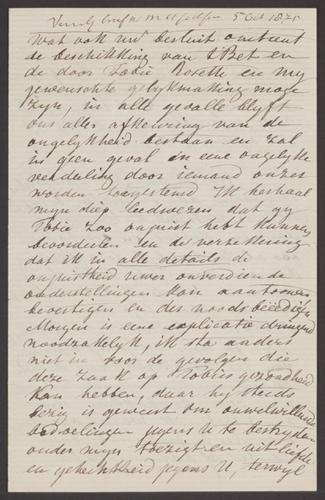 5 Oct 1875
Wat ook uw besluit omtrent
de beschikking van 't Bet en
de door Tobie Rosette en my
gewenschte gelykmaking moge
zyn, in alle gevalle blyft
ons aller afkeuring van de
ongelykheid bestaan en zal
in geen geval in eene ongelyke
verdeeling door iemand onzer
worden toegestemd Ik herhaal
myn diep leedwezen dat gy
Tobie zoo onjuist hebt kunnen
beoordeelen en de verzekering
dat ik in alle details de
onjuistheid uwer onverdiende
onderstellingen kan aantoonen
bevestigen en des noods beëedigen
Morgen is eene explicatie dringend
noodzakelyk, ik sta anders
niet in voor de gevolgen die
deze zaak op Tobies gezondheid
kan hebben, daar hy steeds
bezig is geweest om onwelwillende
bedoelingen jegens U te bestryden
onder myn toezigt en uit liefde
en gehechtheid jegens U, terwyl